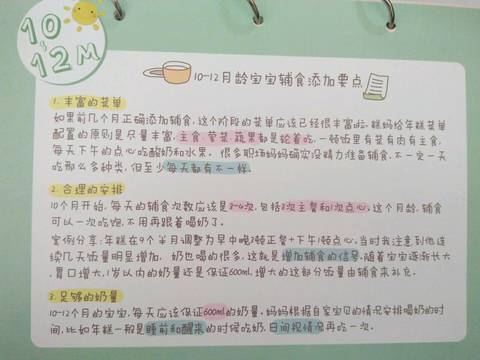 10~12M
10-12月龄宝宝辅食添加要点
1.丰富的菜单
如果前几个月正确添加辅食，这个阶段的菜单应该已经很丰富啦。糕妈给年糕菜单
配置的原则是尽量丰富，主食、荤菜、蔬果都是轮着吃，一顿饭里有菜有肉有主食，
每天下午的点心吃酸奶和水果。很多职场妈妈确实没精力准备辅食，不一定一天
吃那么多种类，但至少每天都有不一样。
2.合理的安排
10个月开始，每天的辅食次数应该是3~4次，包括3次主餐和1次点心。这个月龄，辅食
可以一次吃饱，不用再跟着喝奶了。
案例分享：年糕在9个半月调整为早中晚3顿正餐+下午1顿点心，当时我注意到他连
续几天饭量明显增加，奶也喝的很多，这就是增加辅食的信号。随着宝宝逐渐长大，
胃口增大，1岁以内的奶量还是保证600ml，增大的这部分饭量由辅食来补充。
3.足够的奶量
10-12个月的宝宝，每天应该保证600ml的奶量，妈妈根据自家宝贝的情况安排喝奶的时
间，比如年糕一般是睡前和醒来的时候吃奶，日间视情况再吃一次。